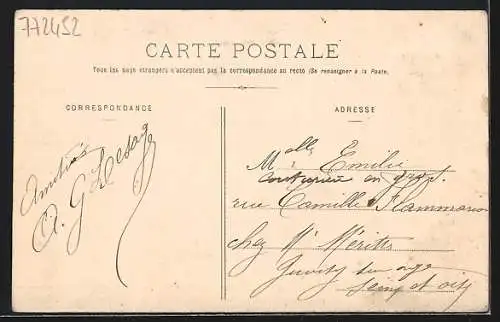 772452
CARTE POSTALE
Tous les pays étrangers n'acceptent pas la correspondance au recto (Se renseigner à la Poste.
CORRESPONDANCE
ADRESSE
Amitiés
A. G. Lesage
Melle Emilie
en
rue Camille Flammarion
chez Mr
Juvisy sur orge
Seine et oise